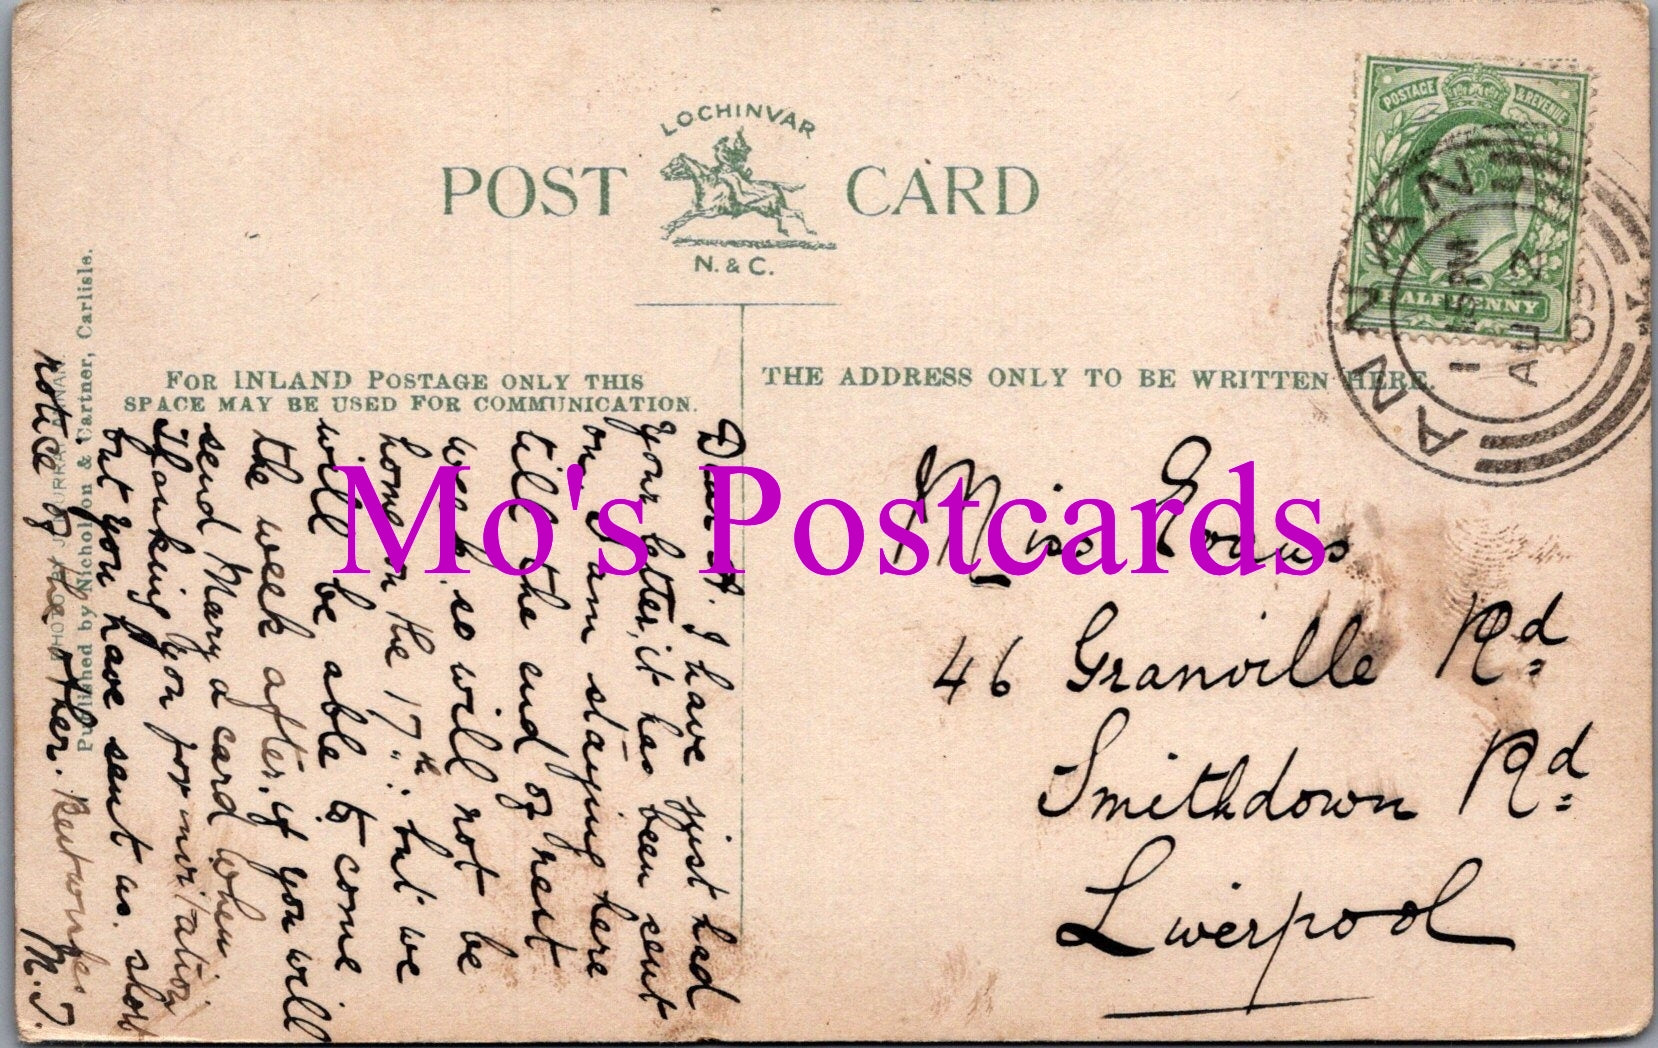 LOCHINVAR
POST CARD
N. & C.
POSTAGE & REVENUE
HALFPENNY
ANNAN
1 15PM
AU 12
05
FOR INLAND POSTAGE ONLY THIS
SPACE MAY BE USED FOR COMMUNICATION.
THE ADDRESS ONLY TO BE WRITTEN HERE.
Published by Nicholson & Cartner, Carlisle.
Mo's Postcards
Dear A. I have just had
your letter, it has been sent
on. I am staying here
till the end of next
week, so will not be
home on the 17th: but we
will be able to come
the week after, if you will
send Mary a card when
Thanking you for invitation
but you have sent us short
notice of the other.
M.J.
Miss Evans
46 Granville Rd
Smithdown Rd
Liverpool